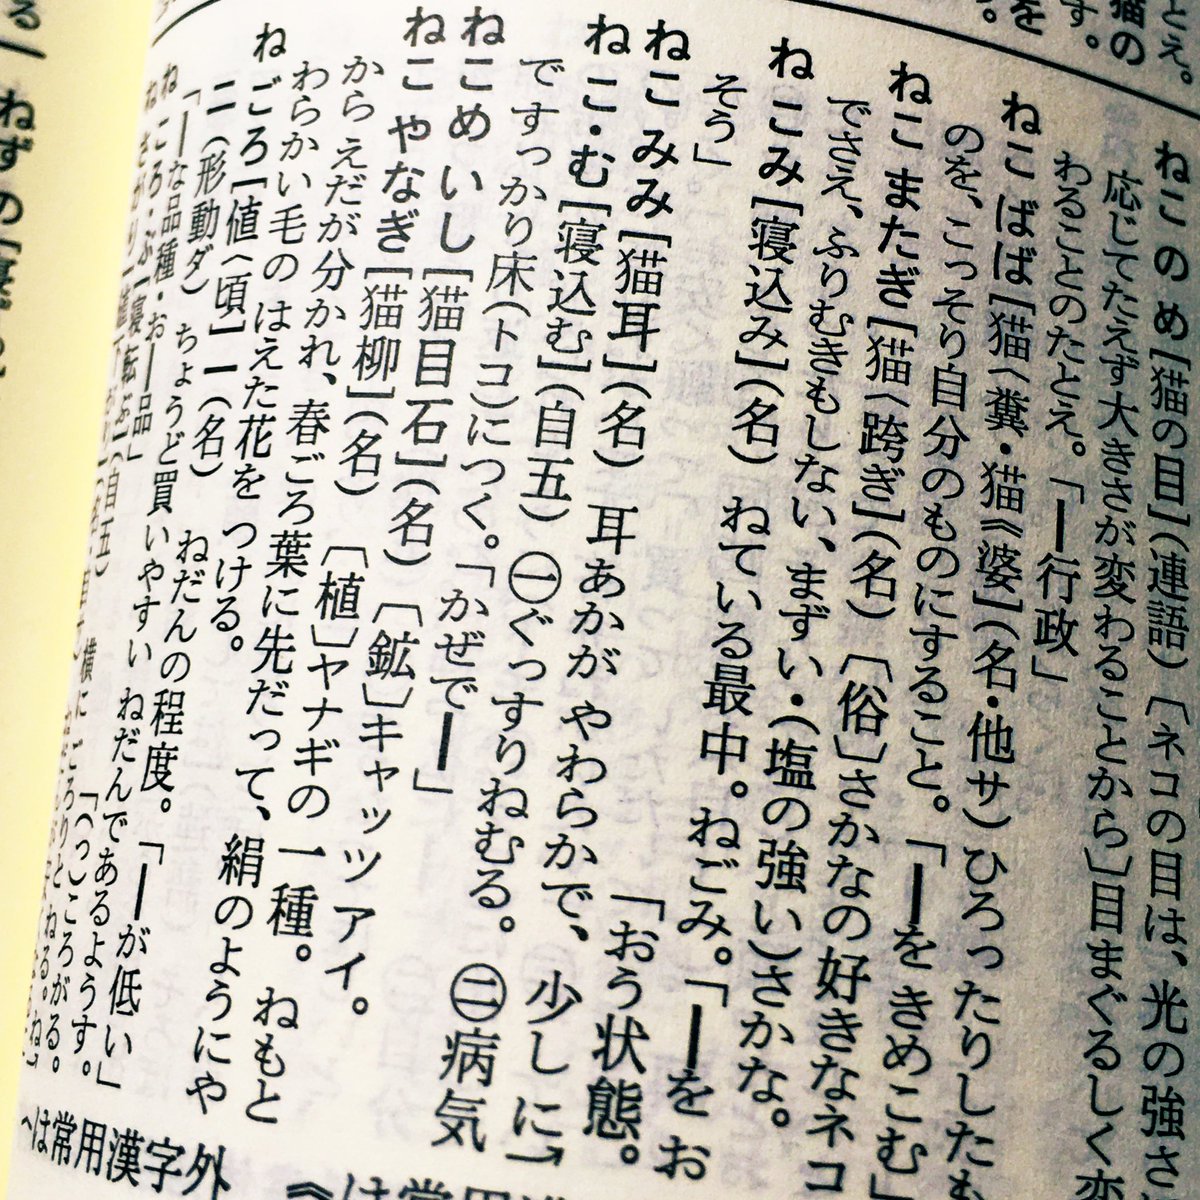 とえ。
猫の
す。
を
ねこ の め[猫の目](連語)〔ネコの目は、光の強さ
応じてたえず大きさが変わることから〕目まぐるしく変
わることのたとえ。「―行政」
ねこ ばば[猫〈糞・猫《婆](名・他サ)ひろったりしたも
のを、こっそり自分のものにすること。「―をきめこむ」
ねこ またぎ[猫〈跨ぎ](名)〔俗〕さかなの好きなネコ
でさえ、ふりむきもしない、まずい・(塩の強い)さかな。
ね こみ[寝込み](名) ねている最中。ねごみ。「―を お
そう」
ねこ みみ[猫耳](名) 耳あかが やわらかで、少しに
「おう状態。
ねこ・む[寝込む](自五)㊀ぐっすりねむる。㊁病気
ですっかり床(トコ)につく。「かぜで―」
ねこ め いし[猫目石](名)〔鉱〕キャッツアイ。
ねこ やなぎ[猫柳](名)〔植〕ヤナギの一種。ねもと
から えだが分かれ、春ごろ葉に先だって、絹のようにや
わらかい毛のはえた花を つける。
ね ごろ[値〈頃]一(名) ねだんの程度。「―が低い」
二(形動ダ) ちょうど買いやすい ねだんであるようす。
「―な品種・お―品」
ね ころ・ぶ[寝転ぶ](自五)
「(つ)ころがる。
ねずの
〈は常用漢字外
《は常用漢